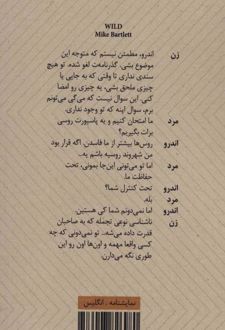 WILD
Mike Bartlett
زن اندرو، مطمئن نیستم که متوجه این
موضوع بشی. گذرنامه‌ت لغو شده. تو هیچ
سندی نداری تا وقتی که به جایی یا
چیزی ملحق بشی، یه چیزی رو امضا
کنی. این سوال نیست که می‌گی می‌تونم
برم، سوال اینه که تو وجود نداری.
مرد ما امتحان کنیم و یه پاسپورت روسی
برات بگیریم؟
اندرو روس‌ها بیشتر از ما فاسدن. اگه قرار بود
من شهروند روسیه باشم یه..
مرد اما تو می‌تونی این‌جا بمونی، تحت
حفاظت ما.
اندرو تحت کنترل شما؟
مرد بله.
اندرو اما نمی‌دونم شما کی هستین.
زن ناشناسی نوعی تجمله که به صاحبان
قدرت داده می‌شه.. تو نمی‌دونی که چه
کسی واقعا مهمه و اون‌ها اون رو این
طوری نگه می‌دارن.
نمایشنامه . انگلیس